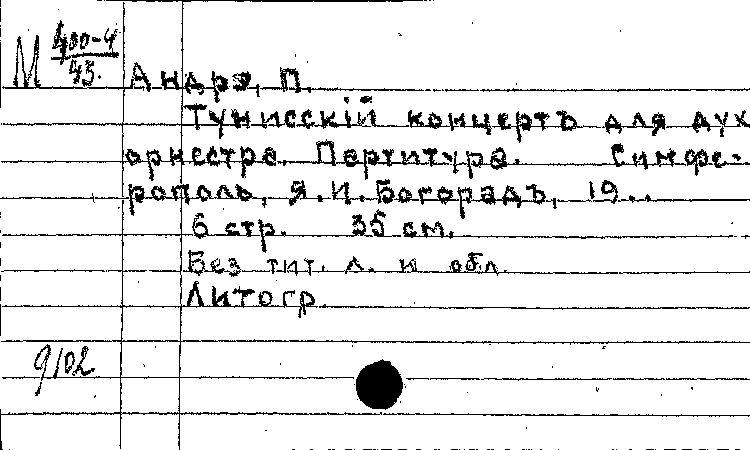 М 400-4/43.
Андрэ, П.
Тунисскій концертъ для дух.
оркестра. Партитура. Симфе-
рополь, Я.И.Богорадъ, 19..
6 стр. 35 см.
Без тит. л. и обл.
Литогр.
9102